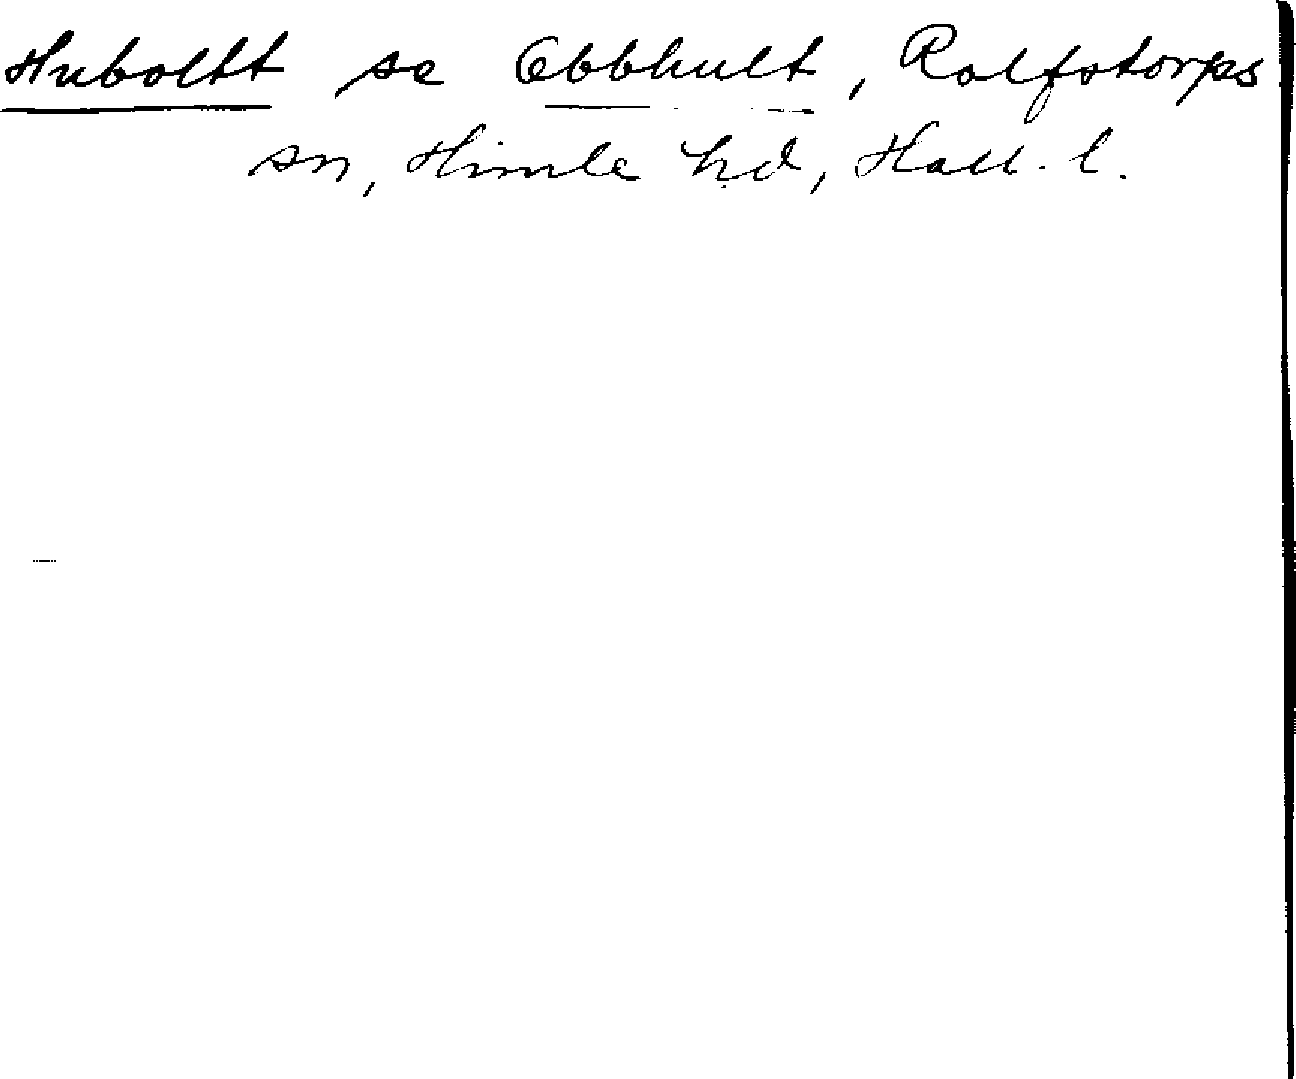 Huboltt se Obbhult, Rolfstorps
sn, Himle hd, Hall. l.